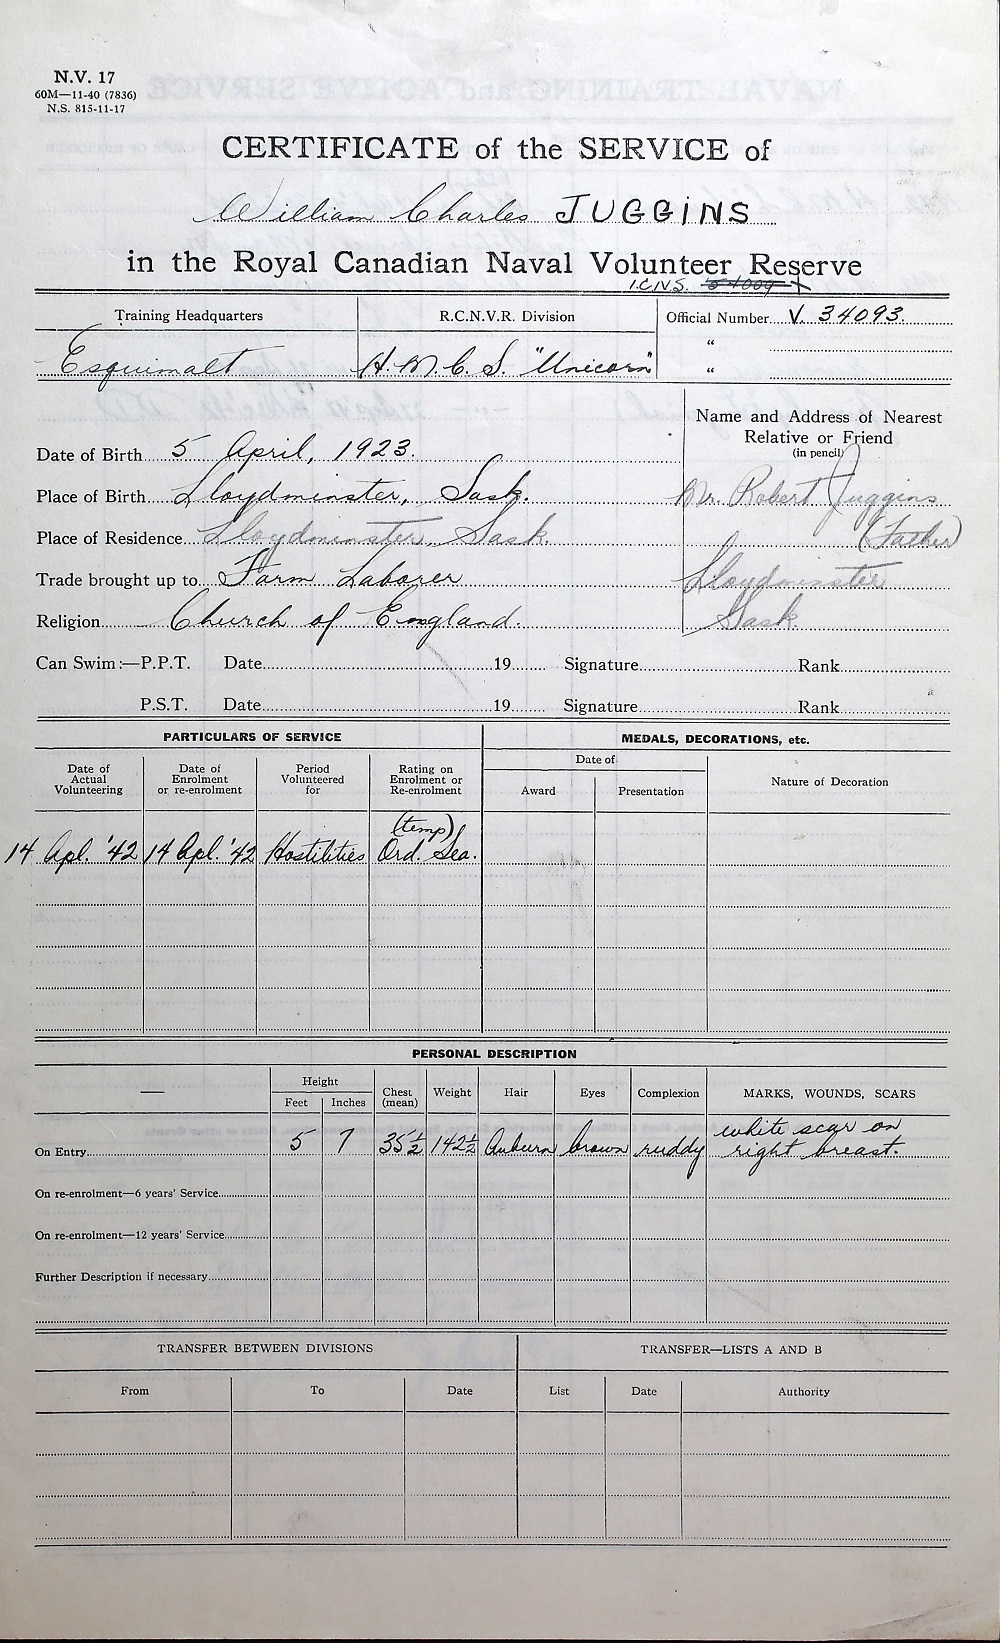 N.V. 17
60M—11-40 (7836)
N.S. 815-11-17
CERTIFICATE of the SERVICE of
William Charles JUGGINS
in the Royal Canadian Naval Volunteer Reserve
I.C.N.S.
Training Headquarters
R.C.N.V.R. Division
Official Number V. 34093.
"
Esquimalt
H.M.C.S. "Unicorn"
"
Name and Address of Nearest
Relative or Friend
(in pencil)
Date of Birth 5 April, 1923.
Place of Birth Lloydminster, Sask.
Mr. Robert Juggins
Place of Residence Lloydminster, Sask.
(Father)
Trade brought up to Farm Laborer
Lloydminster
Religion Church of England.
Sask.
Can Swim:—P.P.T. Date 19 Signature Rank
P.S.T. Date 19 Signature Rank "
PARTICULARS OF SERVICE
MEDALS, DECORATIONS, etc.
Date of Actual Volunteering
Date of Enrolment or re-enrolment
Period Volunteered for
Rating on Enrolment or Re-enrolment
Date of
Award
Presentation
Nature of Decoration
(temp)
14 Apl. '42 14 Apl. '42 Hostilities Ord. Sea.
PERSONAL DESCRIPTION
—
Height
Feet Inches
Chest (mean)
Weight
Hair
Eyes
Complexion
MARKS, WOUNDS, SCARS
On Entry 5 7 35½ 142½ Auburn brown ruddy white scar on
right breast.
On re-enrolment—6 years' Service
On re-enrolment—12 years' Service
Further Description if necessary
TRANSFER BETWEEN DIVISIONS
TRANSFER—LISTS A AND B
From To Date List Date Authority